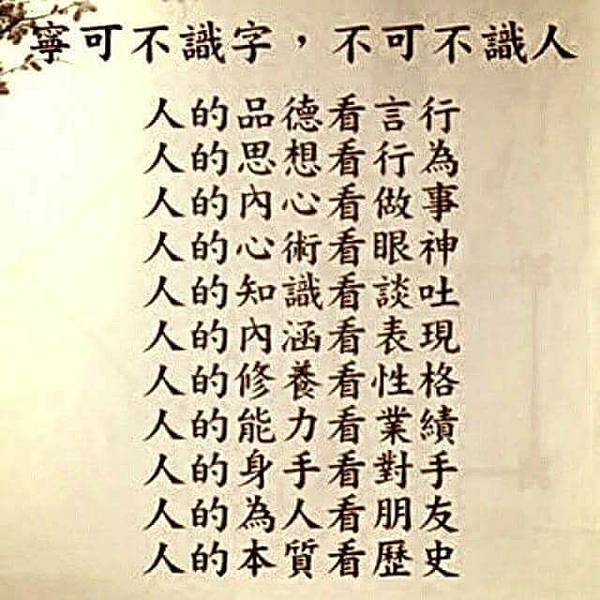 寧可不識字，不可不識人
人的品德看言行
人的思想看行為
人的內心看做事
人的心術看眼神
人的知識看談吐
人的內涵看表現
人的修養看性格
人的能力看業績
人的身手看對手
人的為人看朋友
人的本質看歷史